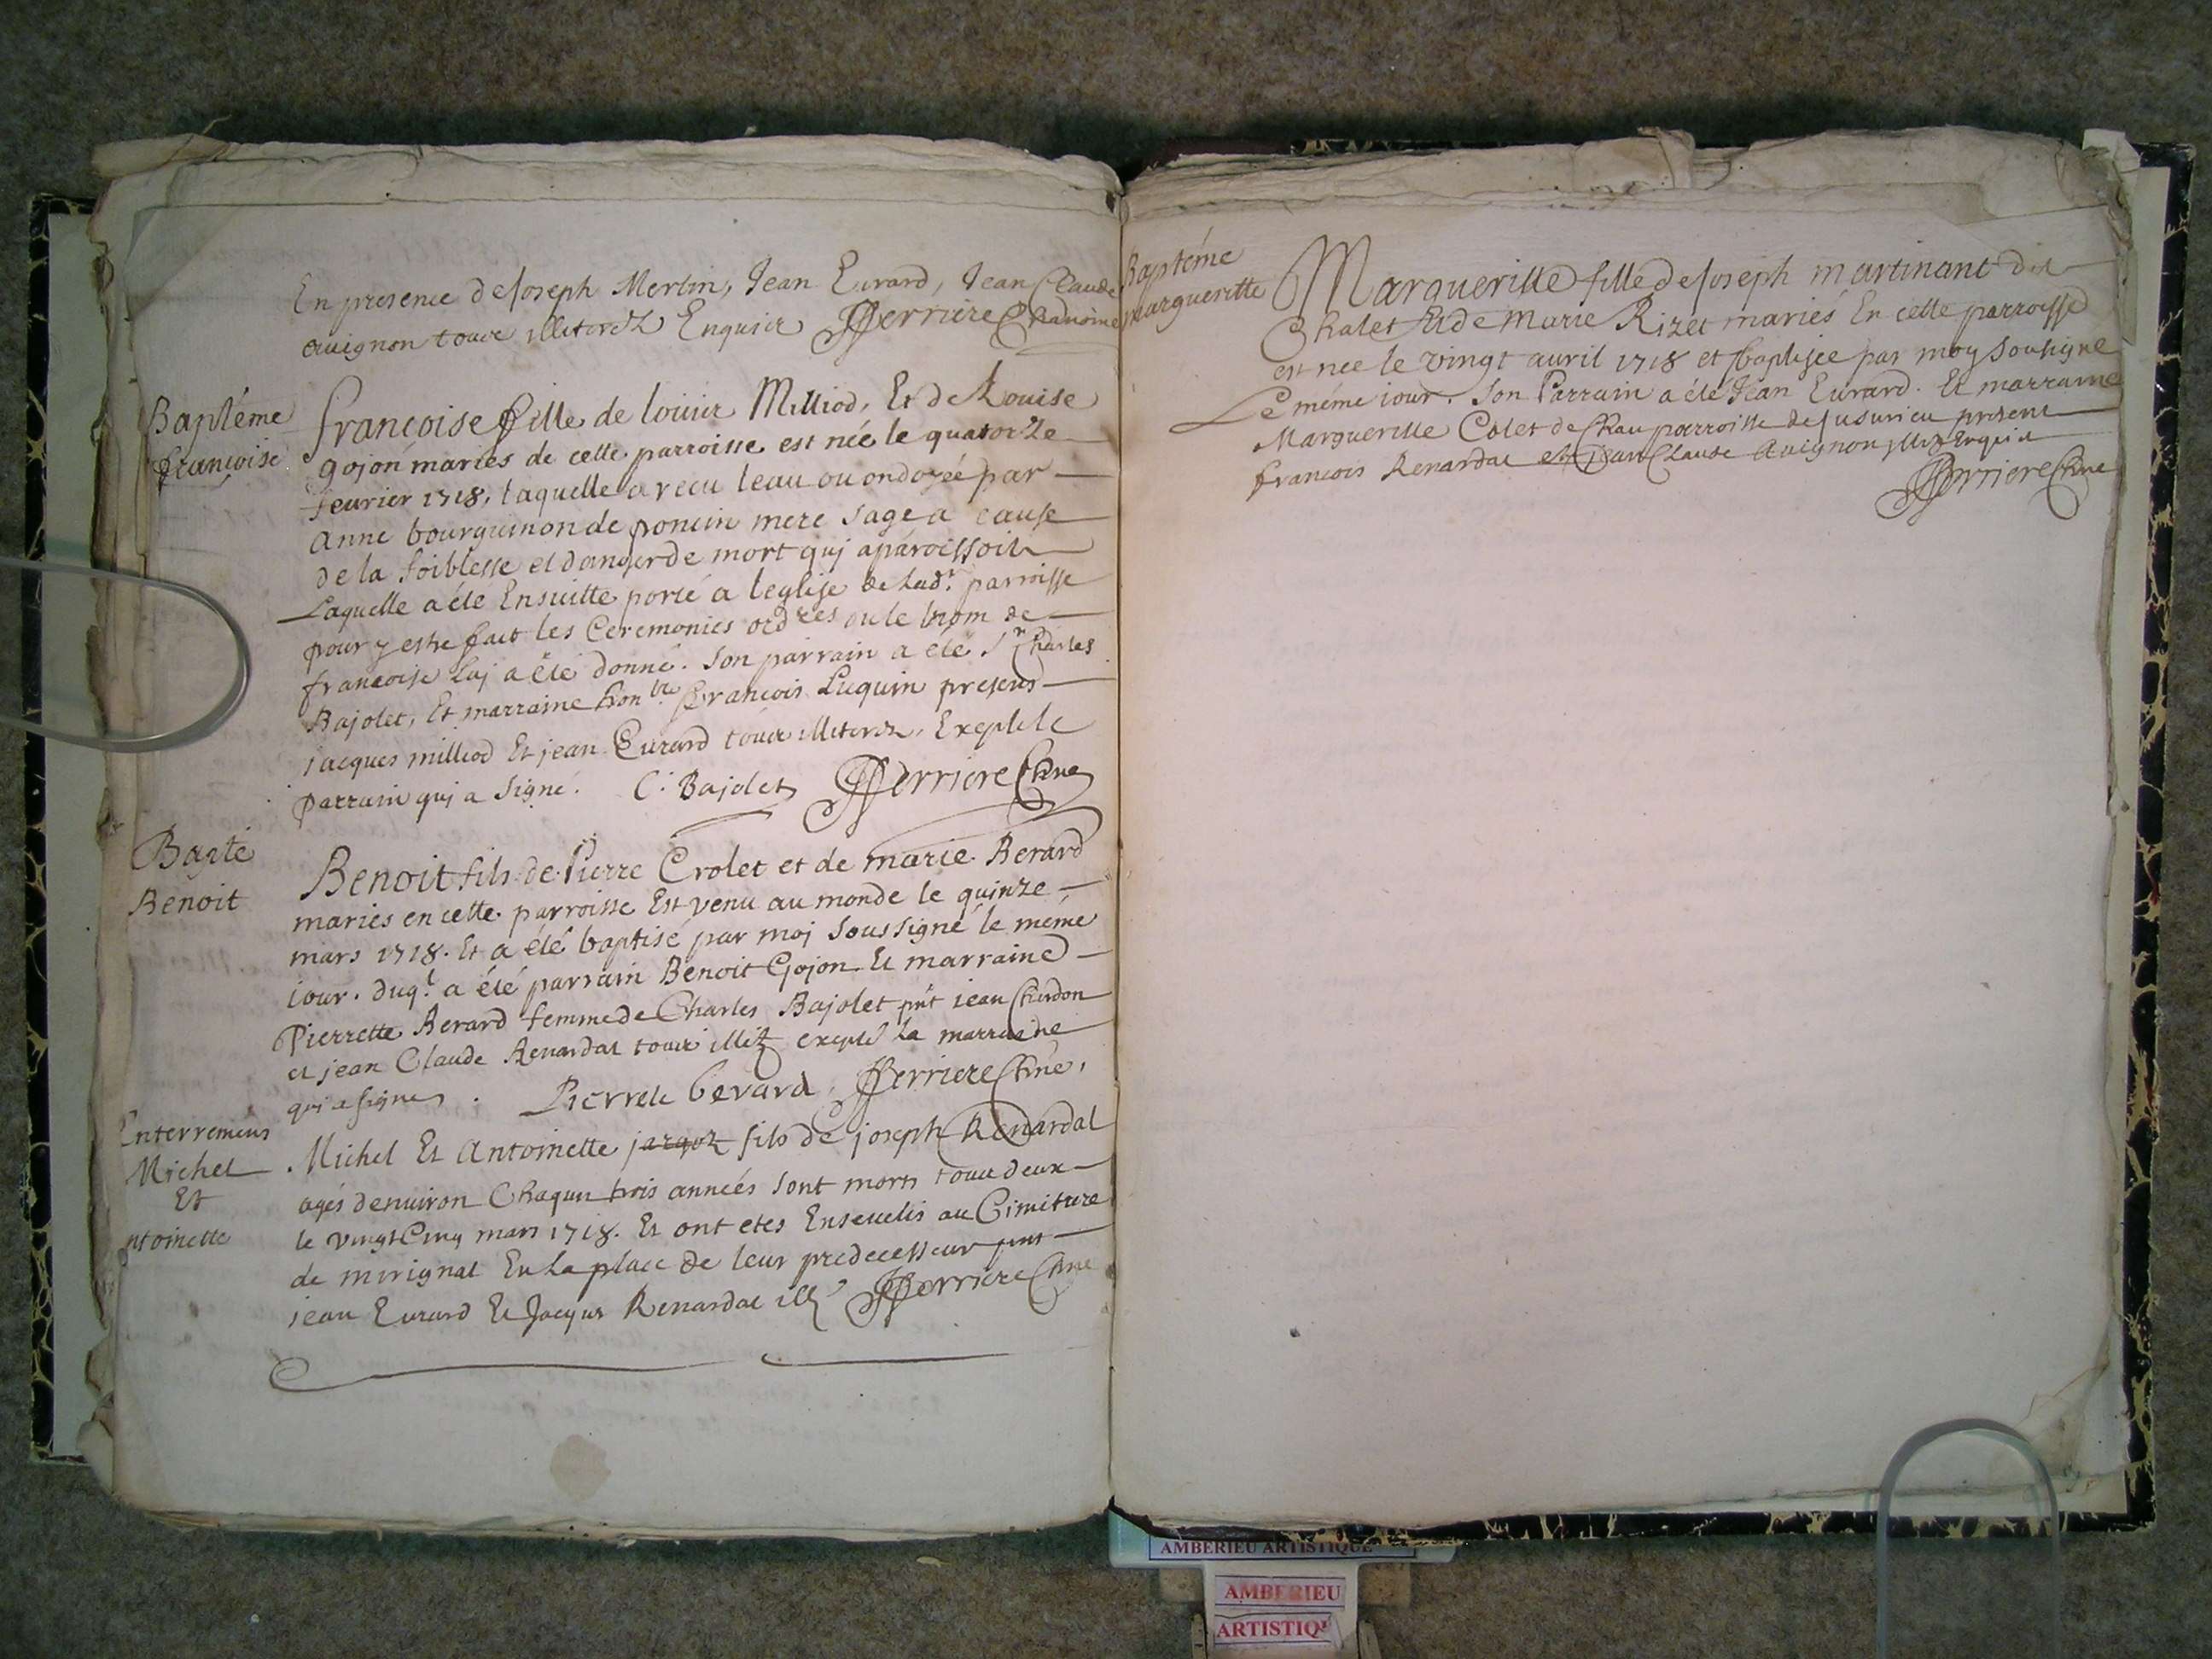 En presence de Joseph Merlin, Jean Eurard, Jean Claude
auignon tous illiterez Enquis Perriere Chanoine
Baptéme
françoise
françoise fille de louis Milliod, Et de Louise
gojon mariés de cette parroisse est née le quatorze
feurier 1718, laquelle a recu leau ou ondoyée par
Anne bourguinon de poncin mere sage a cause
de la foiblesse et danger de mort quj aparoissoit
Laquelle a été Ensuitte porté a leglise de Lad.t parroisse
pour y estre fait les Ceremonies ordres ou le nom de
francoise luj a été donné. Son parrain a été Sr Charles
Bajolet, Et marraine hon.ble francois Luquin presens
jacques milliod Et jean Eurard tous illiterez, Exepte le
parrain quj a signé. C. Bajolet Perriere Chne
Bapte
Benoit
Benoit fils de Pierre Crolet et de marie Berard
mariés en cette parroisse Est venu au monde le quinze
mars 1718. Et a été baptisé par moj soussigné le méme
iour. duq.l a été parrain Benoit Gojon Et marraine
Pierrette Berard femme de Charles Bajolet pnt iean Chardon
et jean Claude Renardat tous illitz exepté La marraine
qui a signe. Pierrete berard, Perriere Chne,
Enterremens
Michel
Et
ntoinette
Michel Et Antoinette jarqoz fils de joseph Renardat
agés denuiron Chaqun trois années sont morts tous deux
le vingt Cinq mars 1718. Et ont etes Enseuelis au Cimitiere
de mirignat En La place de leur predecesseur pnt
jean Eurard Et Jacques Renardat ill Perriere Chne
Baptéme
marguerite
Marguerite fille de Joseph martinant dit
Chalet Et de Marie Rizet mariés En cette parroisse
est nee le vingt auril 1718 et baptisée par moy sousigne
Le méme iour. Son Parrain a été Jean Eurard. Et marraine
Marguerite Colet de Chau parroisse de Jusurieu present
francois Renardat et jean Claude Auignon illitz Enquis
Perriere Chne
AMBERIEU ARTISTIQUE
AMBERIEU
ARTISTIQU